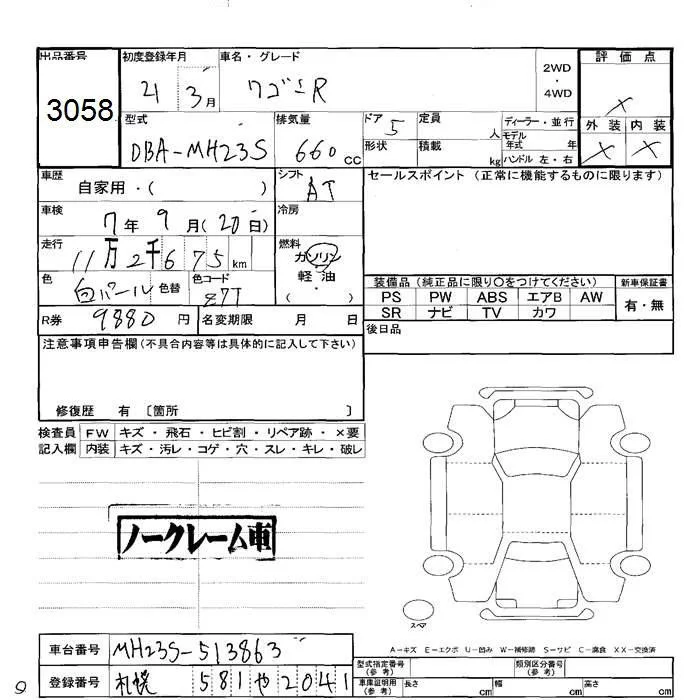 出品番号
3058
初度登録年月
21 3月
車名・グレード
ワゴンR
2WD
・
4WD
評価点
×
型式
DBA-MH23S
排気量
660 CC
ドア 5
形状
定員 人
積載 kg
ディーラー・並行
モデル年式 年
ハンドル 左・右
外装 内装
× ×
車歴
自家用・( )
シフト
AT
セールスポイント (正常に機能するものに限ります)
車検
7年 9月(20日)
冷房
走行
11万2千675km
燃料
ガソリン
軽油
( ・ )
色
白パール 色替
色コード
Z7T
装備品 (純正品に限り〇をつけてください)
PS PW ABS エアB AW
SR ナビ TV カワ
新車保証書
有・無
R券 9880円 名変期限 月 日
後日品
注意事項申告欄(不具合内容等は具体的に記入して下さい)
修復歴 有 〔箇所 〕
検査員記入欄
FW キズ・飛石・ヒビ割・リペア跡・×要
内装 キズ・汚レ・コゲ・穴・スレ・キレ・破レ
ノークレーム車
スペア
A-キズ E-エクボ U-凹み W-補修跡 S-サビ C-腐食 XX-交換済
車台番号 MH23S-513863
登録番号 札幌 581 や 2041
型式指定番号(参考)
類別区分番号(参考)
車庫証明用(参考) 長さ cm 幅 cm 高さ cm